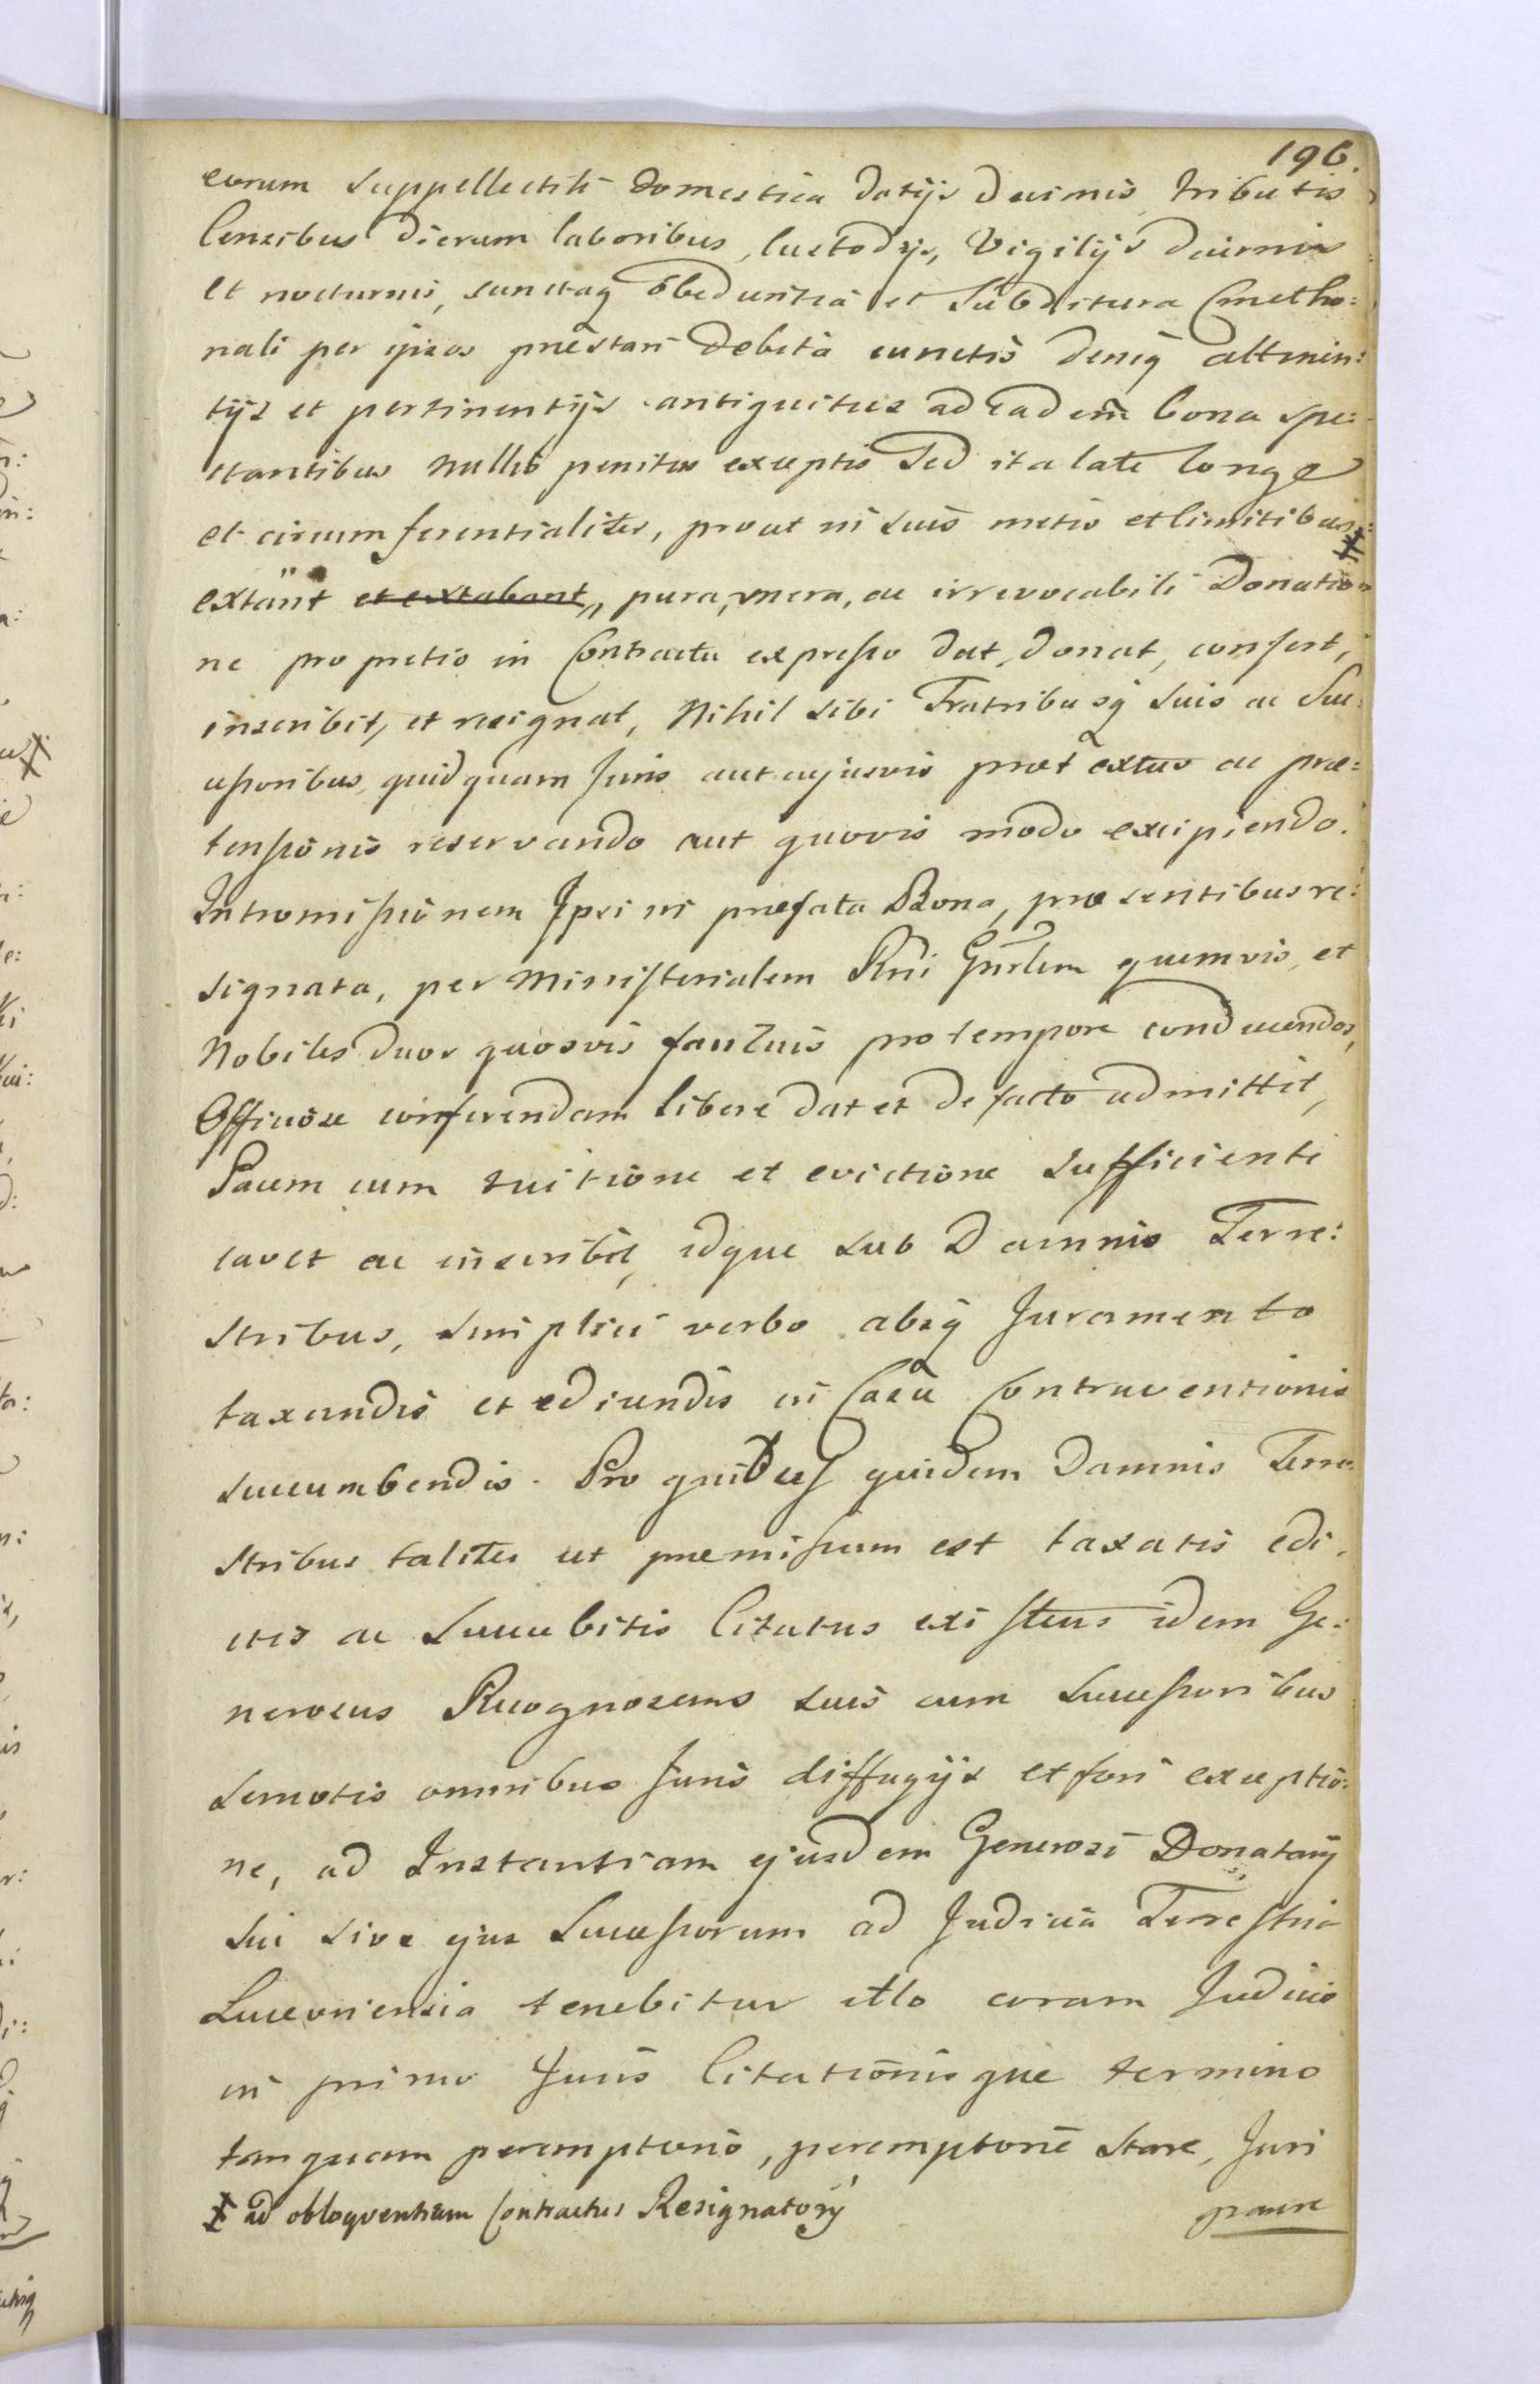 196.
eorum suppellectili domestica datijs decimis tributis
Censibus dierum laboribus, Custodijs, Vigilijs diurnis
et nocturnis, cunctaq obedientiâ et Subditura Cmetho:
nali per ipsos præstari debitâ cunctis deniq attinen:
tijs et pertinentijs antiquitus ad eadem bona spe:
ctantibus nullis penitus exceptis Sed ita late longe
et circumferentialiter, prout in suis metis et limitibus #
extant et extabant „ pura, mera, ac irrevocabili Donatio:
ne pro pretio in Contractu expresso dat, donat, confert,
inscribit, et resignat, Nihil sibi Fratribusq suis ac Suc:
cessoribus, quidquam Juris aut cujusvis prætextus ac præ:
tensionis reservando aut quovis modo excipiendo.
Intromissionem Ipsi in præfata Bona, præsentibus re:
signata, per Ministerialem Rni Gnrlem quemvis, et
Nobiles duos quosvis pro tempore conducendos,
Officiose conferendam libere dat et de facto admittit,
Pacem cum tuitione et evictione sufficienti
cavet ac inscribit, idque sub Damnis Terre:
stribus, simplici verbo absq Juramento
taxandis et ediendis in Casu Contraventionis
succumbendis. Pro quibus quidem Damnis Terre
stribus taliter ut præmissum est taxatis edi:
ctis ac Succubitis Citatus existens idem Ge:
nerosus Recognoscens suis cum Successoribus
semotis omnibus Juris diffugijs et fori exceptio:
ne, ad Instantiam ejusdem Generosi Donatarij
sui sive ejus Successorum ad Judicia Terrestria
Luceoriensia tenebitur illo coram Judicio
in primo Juris Citationisque termino
tanquam peremptorio, peremptorie stare, Juri
# ad obloquentiam Contractus Resignatorij
parere